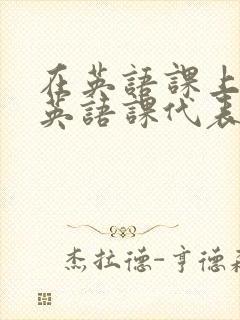 在英語課上
英語課代表
杰拉德-亨德森